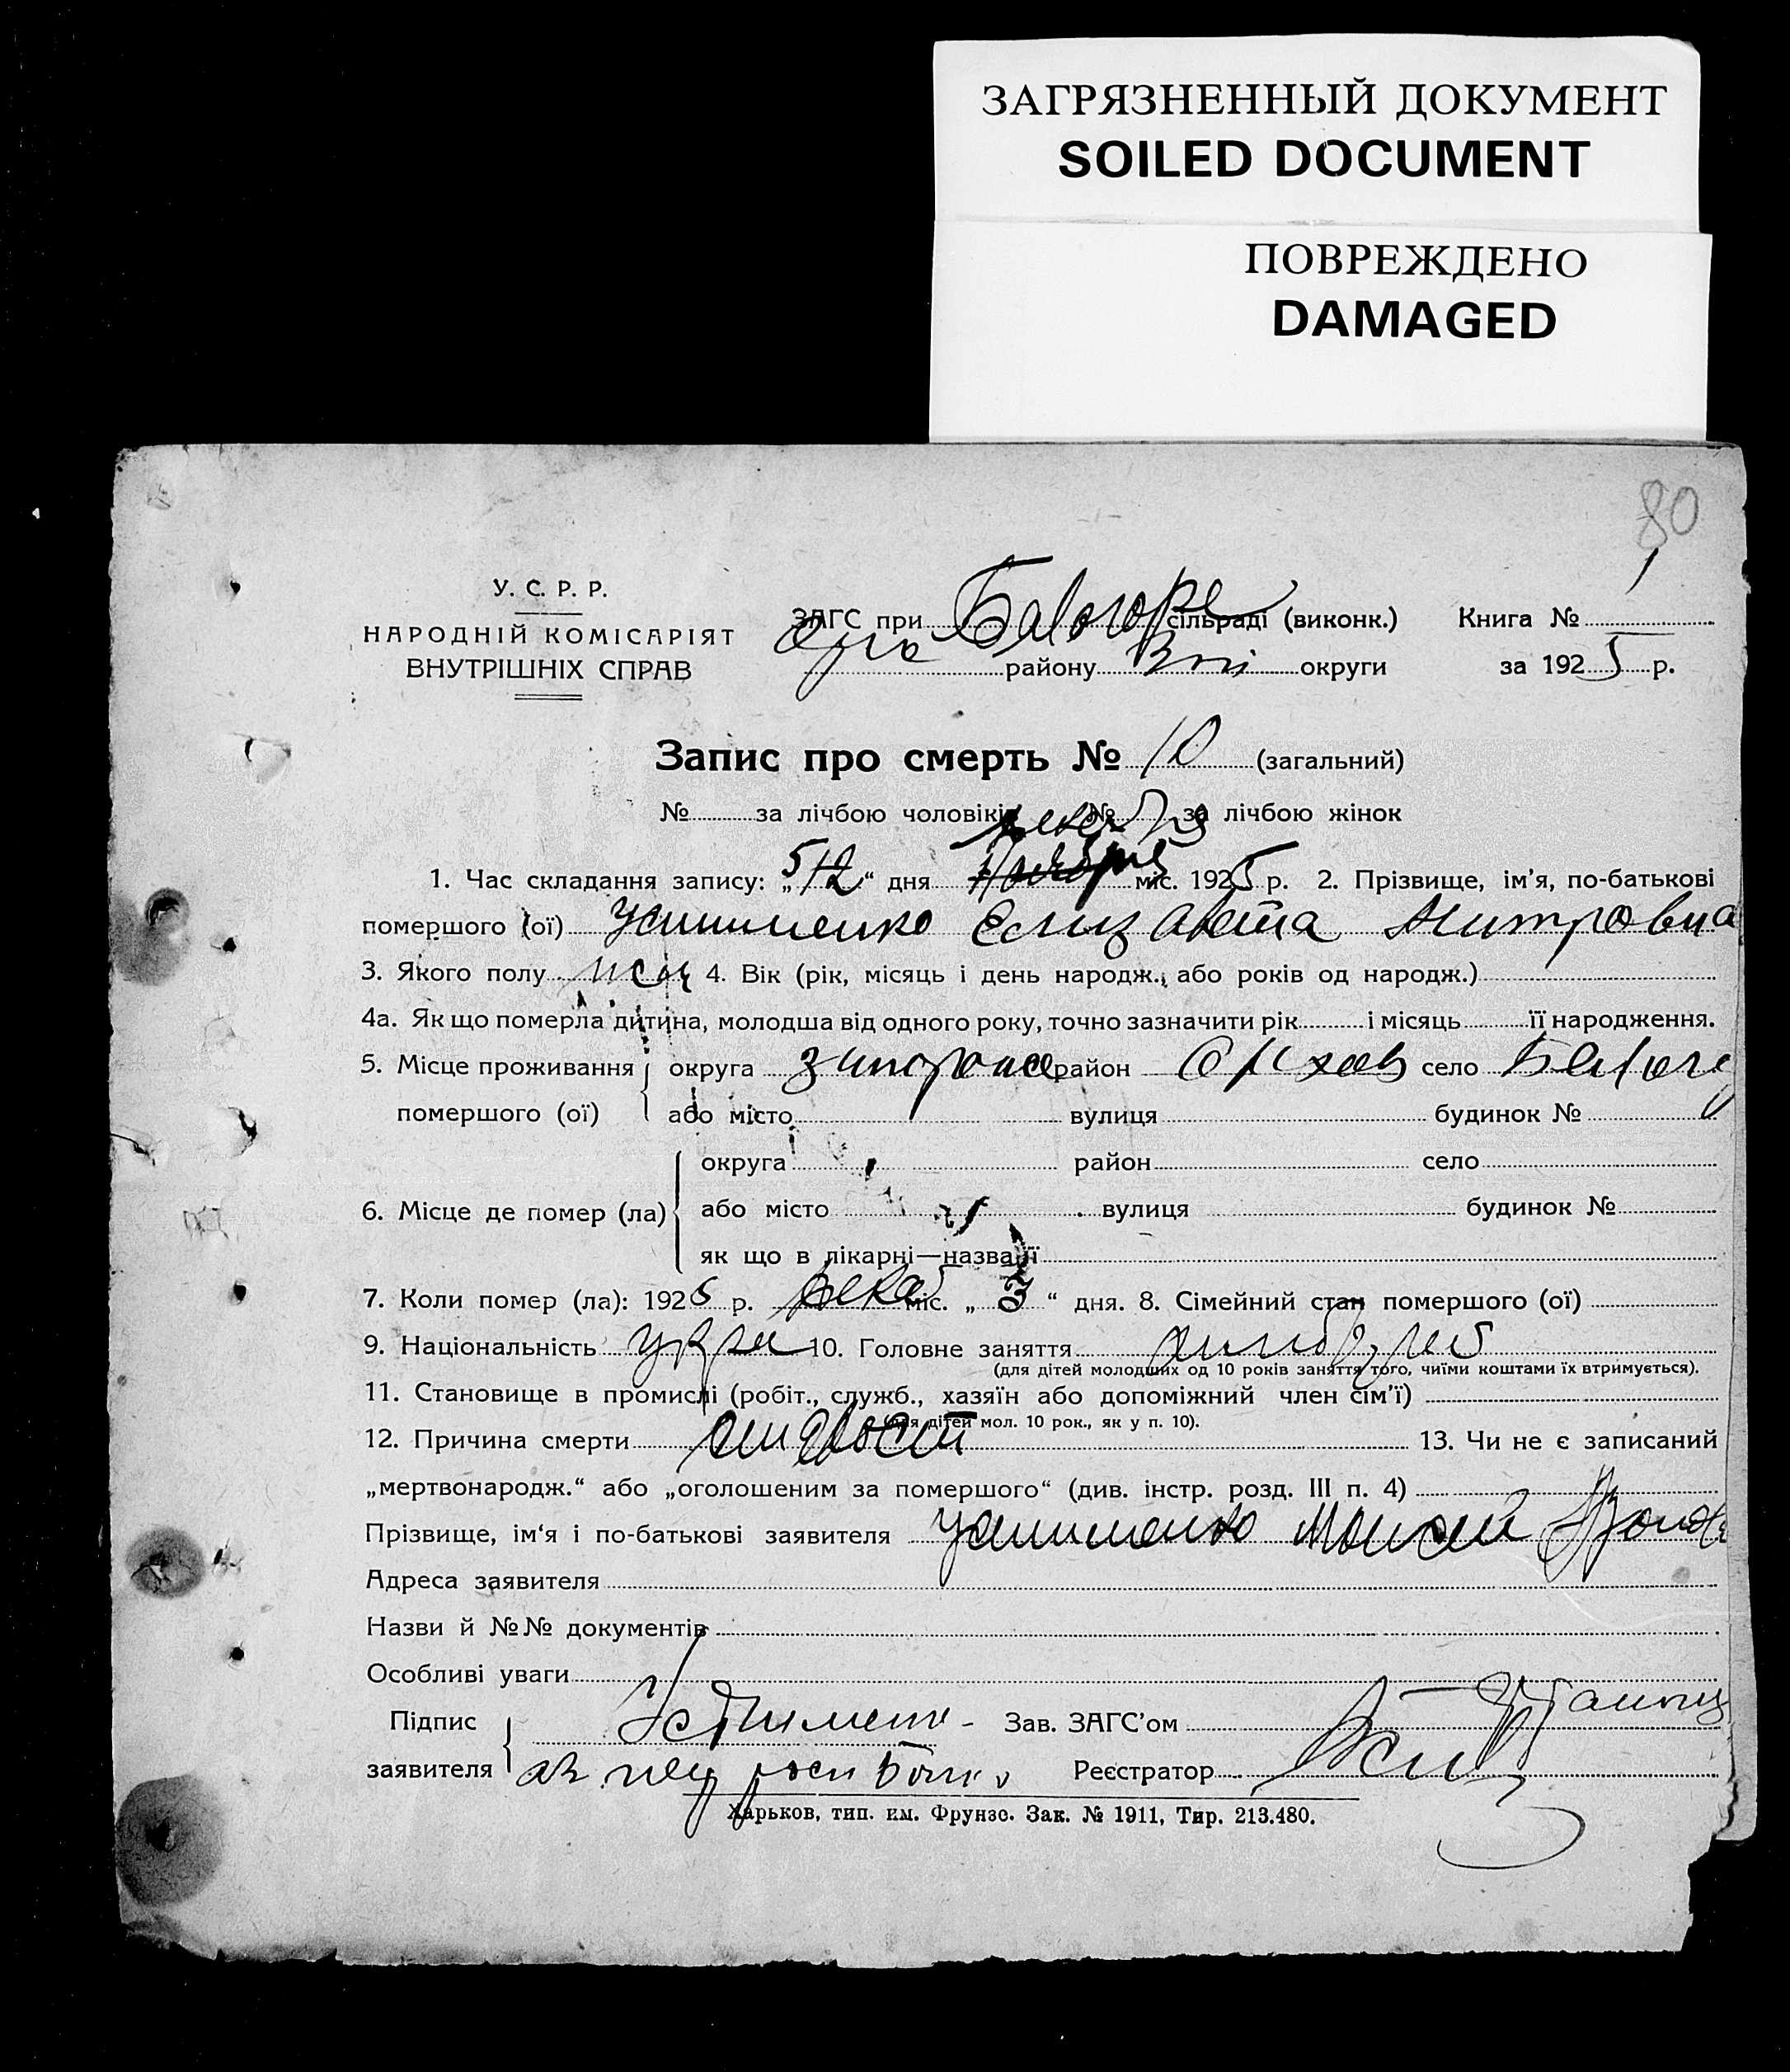 ЗАГРЯЗНЕННЫЙ ДОКУМЕНТ
SOILED DOCUMENT
ПОВРЕЖДЕНО
DAMAGED
80
У. С. Р. Р.
НАРОДНІЙ КОМІСАРІЯТ
ВНУТРІШНІХ СПРАВ
ЗАГС при сільраді (виконк.)
району округи
Книга № 1
за 1925 р.
Запис про смерть № 10 (загальний)
№ за лічбою чоловіків № 5 за лічбою жінок
1. Час складання запису: „ 5 12 “ дня міс. 1925 р. 2. Прізвище, ім'я, по-батькові
помершого (ої) Устименко Елизавета Митровна
3. Якого полу жен 4. Вік (рік, місяць і день народж., або років од народж.)
4а. Як що померла дитина, молодша від одного року, точно зазначити рік і місяць її народження.
5. Місце проживання помершого (ої) округа район Орехов село
або місто вулиця будинок №
6. Місце де помер (ла) округа район село
або місто вулиця будинок №
як що в лікарні—назва її
7. Коли помер (ла): 1925 р. декаб міс. „ 3 “ дня. 8. Сімейний стан помершого (ої)
9. Національність укра 10. Головне заняття хлибороб
(для дітей молодших од 10 років заняття того, чиїми коштами їх втримується).
11. Становище в промислі (робіт., служб., хазяїн або допоміжний член сім'ї)
(для дітей мол. 10 рок., як у п. 10).
12. Причина смерти 13. Чи не є записаний
„мертвонародж.“ або „оголошеним за помершого“ (див. інстр. розд. III п. 4)
Прізвище, ім'я і по-батькові заявителя Устименко Моисей
Адреса заявителя
Назви й №№ документів
Особливі уваги
Підпис заявителя Устимено - Зав. ЗАГС'ом
Реєстратор
Харьков, тип. им. Фрунзе. Зак. № 1911, Тир. 213.480.